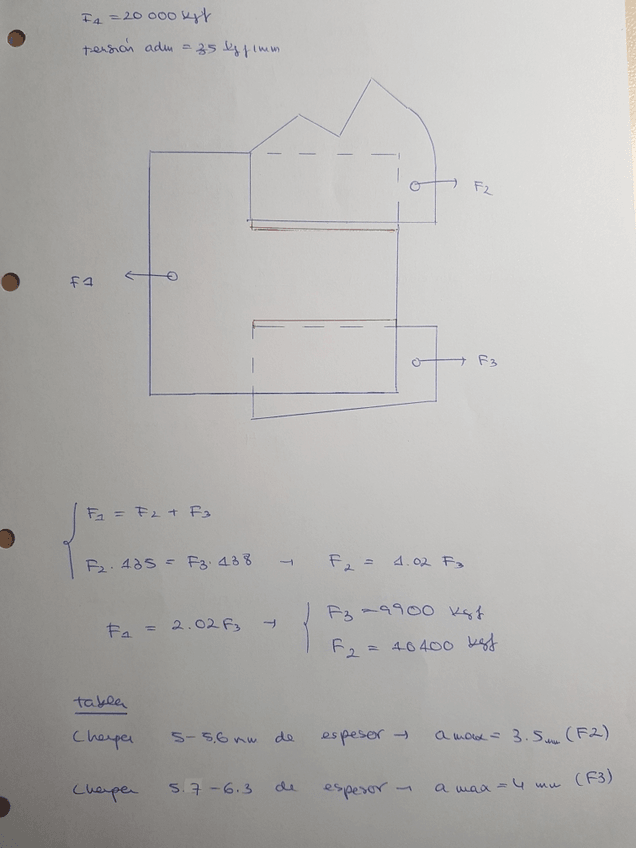 F1 = 20 000 kgf
tensión adm = 35 kgf/mm
F2
F1
F3
F1 = F2 + F3
F2 · 435 = F3 · 438 → F2 = 1.02 F3
F1 = 2.02 F3 → F3 = 9900 kgf
F2 = 10400 kgf
tabla
Chapa 5-5,6 mm de espesor → a max = 3.5 mm (F2)
Chapa 5.7-6.3 de espesor → a max = 4 mm (F3)